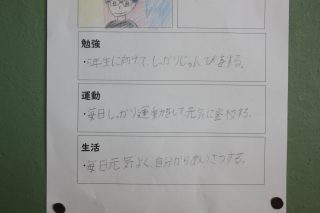 勉強
・5年生に向けて、しっかりじゅんびをする。
運動
・毎日しっかり運動をして元気に登校する。
生活
・毎日元気よく、自分からあいさつする。